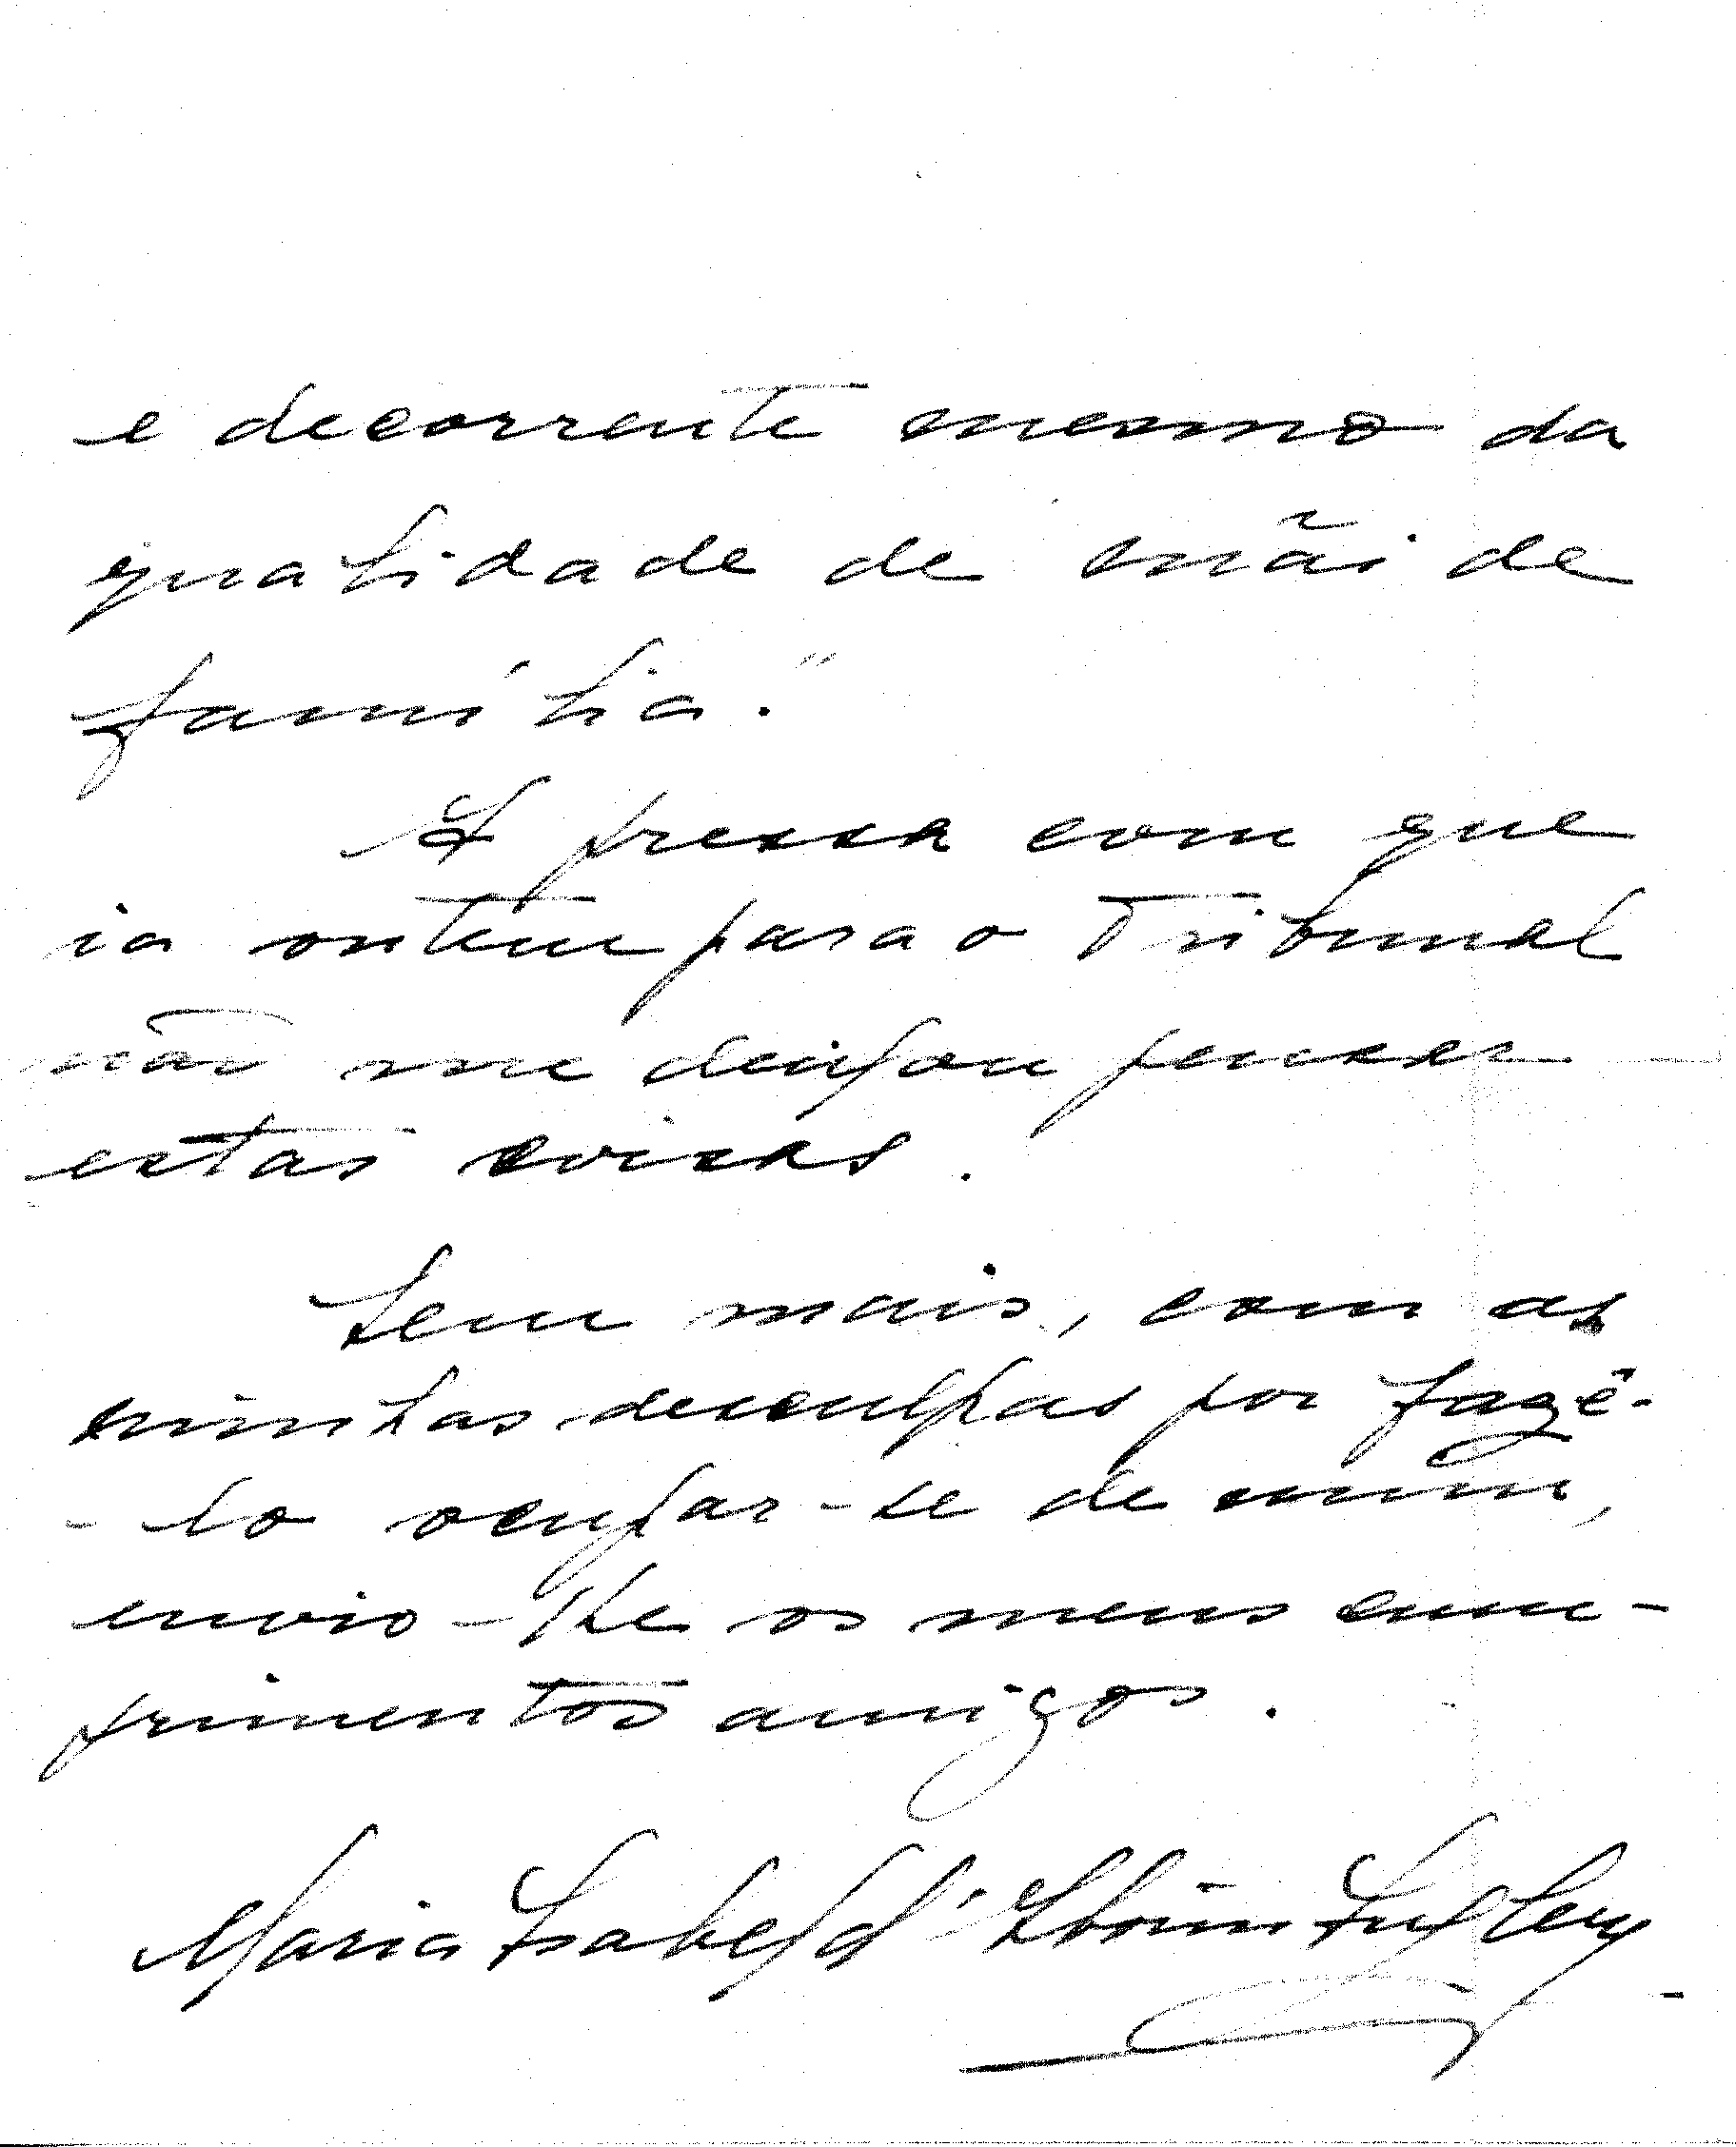 e decorrente mesmo da
qualidade de mãi de
família."
A pressa com que
ia ontem para o Tribunal
não me deixou pensar
estas coisas.
Sem mais, com as
minhas desculpas por fazê-
-lo ocupar-se de mim,
envio-lhe os meus cum-
primentos amigos.
Maria Isabel d'